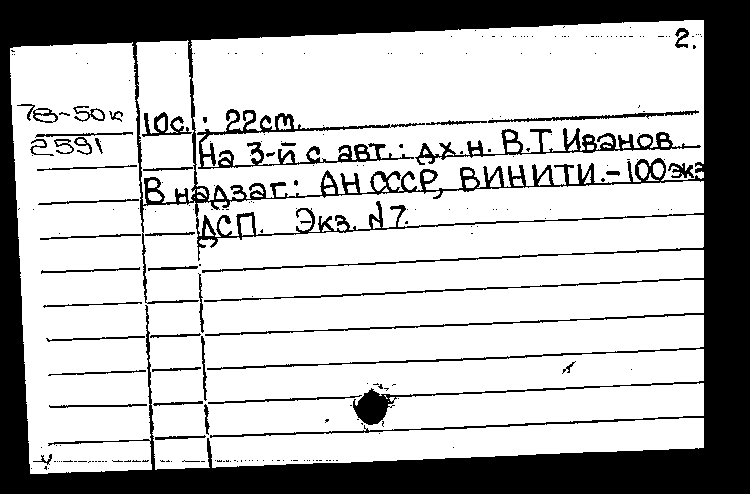 2.
78-50к 10с.; 22см.
2591 На 3-й с. авт.: д.х.н. В.Т. Иванов.
В надзаг.: АН СССР, ВИНИТИ.-100экз
ДСП. Экз. №7.